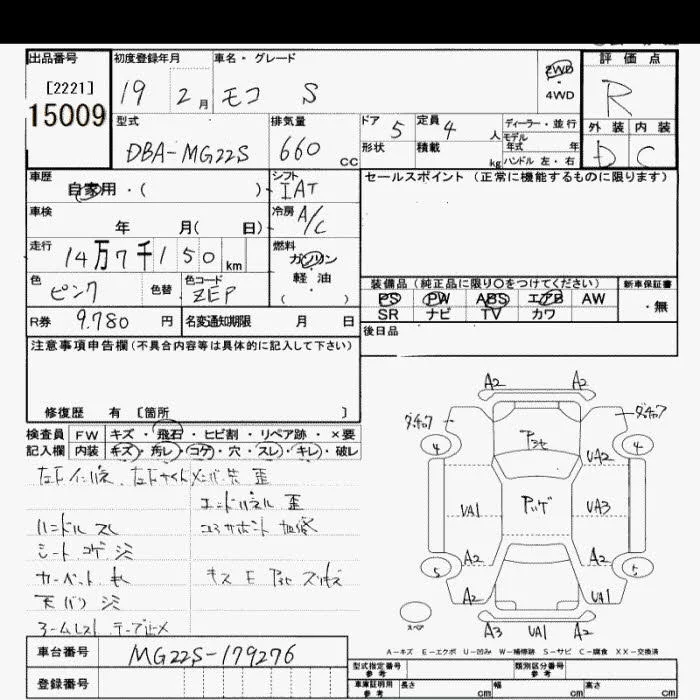 出品番号
[2221]
15009
初度登録年月
19 2月
車名・グレード
モコ S
2WD
4WD
評価点
R
外装 内装
D C
型式
DBA-MG22S
排気量
660 CC
ドア 5
形状
定員 4 人
積載 kg
ディーラー・並行
モデル年式 年
ハンドル 左・右
車歴
自家用・( )
シフト
IAT
車検
年 月( 日)
冷房
A/C
走行
14万7千150 km
燃料
ガソリン
・
軽油
( )
色
ピンク
色替
色コード
ZEP
R券 9.780 円
名変通知期限 月 日
セールスポイント(正常に機能するものに限ります)
装備品(純正品に限り〇をつけてください)
新車保証書
PS PW ABS エアB AW
SR ナビ TV カワ
・無
後日品
注意事項申告欄(不具合内容等は具体的に記入して下さい)
修復歴 有 [箇所 ]
検査員 FW キズ・飛石・ヒビ割・リペア跡・×要
記入欄 内装 キズ・汚レ・コゲ・穴・スレ・キレ・破レ
エンドパネル 歪
ハンドル スレ
シート コゲ シミ
カーペット
天バリ シミ
A2 A2
4 4
UA2
UA1 UA3
A2 A2
5 5
A2 UA1
スペア
A3 UA1 A2
A-キズ E-エクボ U-凹み W-補修跡 S-サビ C-腐食 XX-交換済
車台番号 MG22S-179276
登録番号
型式指定番号 参考
類別区分番号 参考
車庫証明用 参考 長さ cm 幅 cm 高さ cm